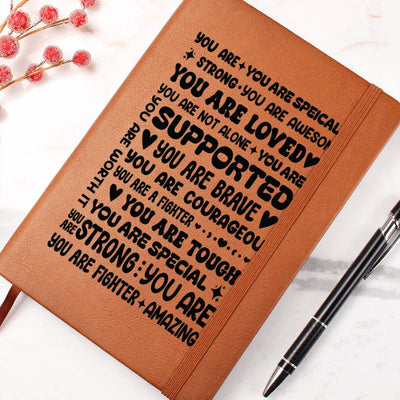 YOU ARE ✦ YOU ARE SPEICAL
STRONG · YOU ARE AWESOM
YOU ARE LOVED ♥
YOU ARE NOT ALONE ✦ YOU ARE
SUPPORTED
♥ YOU ARE BRAVE
YOU ARE COURAGEOU
YOU ARE A FIGHTER
YOU ARE WORTH IT
♥ YOU ARE TOUGH
YOU ARE SPECIAL
YOU ARE
STRONG : YOU ARE
YOU ARE FIGHTER ✦ AMAZING